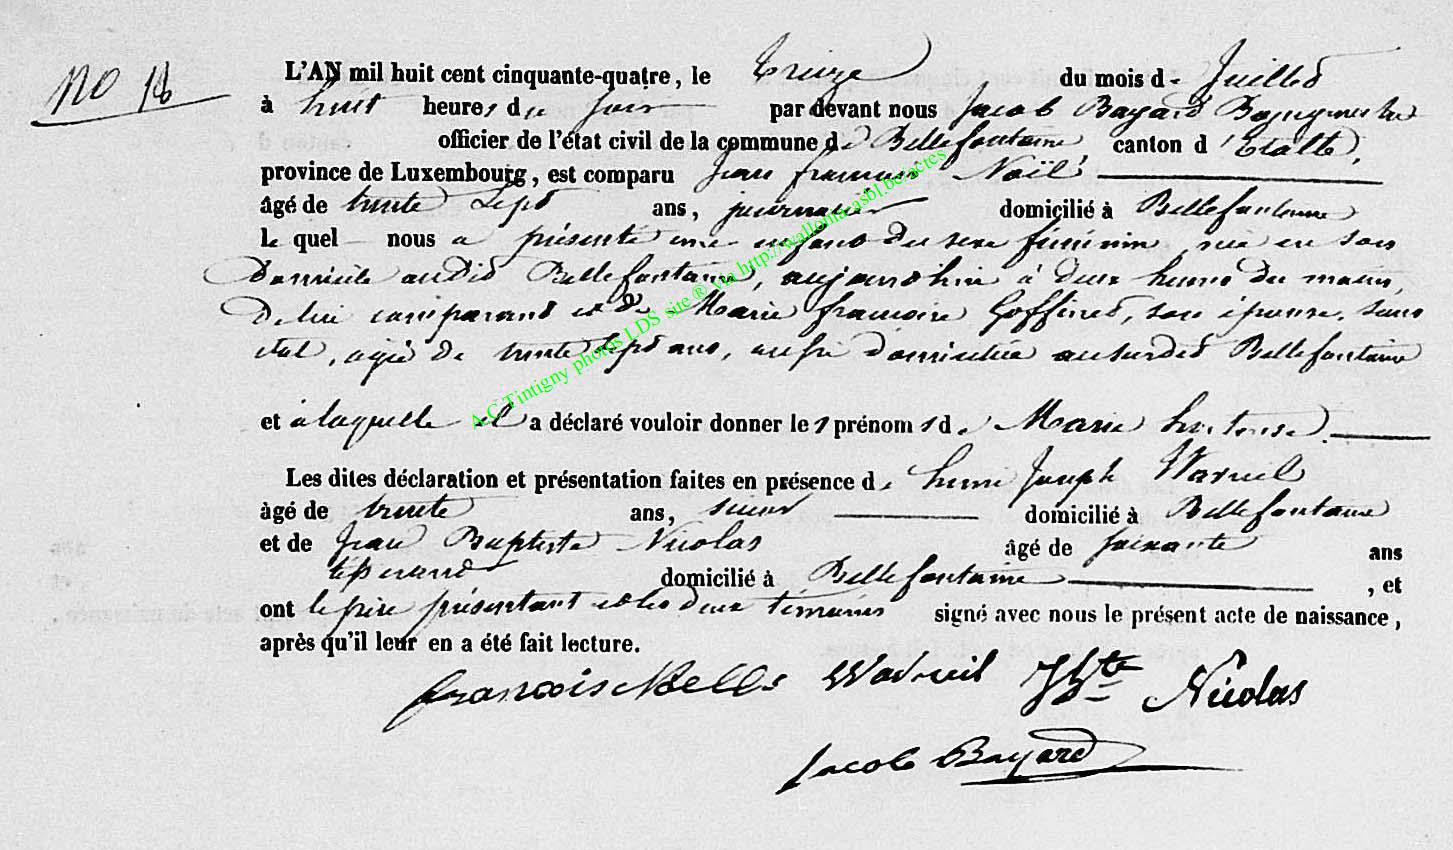 NO 18
L'AN mil huit cent cinquante-quatre, le treize du mois de Juillet
à huit heures du soir par devant nous Jacob Bayard Bourgmestre
officier de l'état civil de la commune de Bellefontaine canton d'Etalle,
province de Luxembourg, est comparu Jean françois Noël
âgé de trente sept ans, journalier domicilié à Bellefontaine
lequel nous a présenté une enfant du sexe féminin, née en son
domicile audit Bellefontaine, aujourdhui à deux heures du matin,
de lui comparant et de Marie françoise Goffinet, son épouse, sans
état, agée de trente sept ans, aussi domiciliée au susdit Bellefontaine
et à laquelle il a déclaré vouloir donner les prénoms de Marie hortense.
Les dites déclaration et présentation faites en présence de henri Joseph Warnil
âgé de trente ans, domicilié à Bellefontaine
et de Jean Baptiste Nicolas âgé de soixante ans
tisserand domicilié à Bellefontaine, et
ont le père présentant et les deux témoins signé avec nous le présent acte de naissance,
après qu'il leur en a été fait lecture.
françois Nicolas
Jacob Bayard
A.C.Tintigny photos LDS site ® via http://wallonia-asbl.be/actes